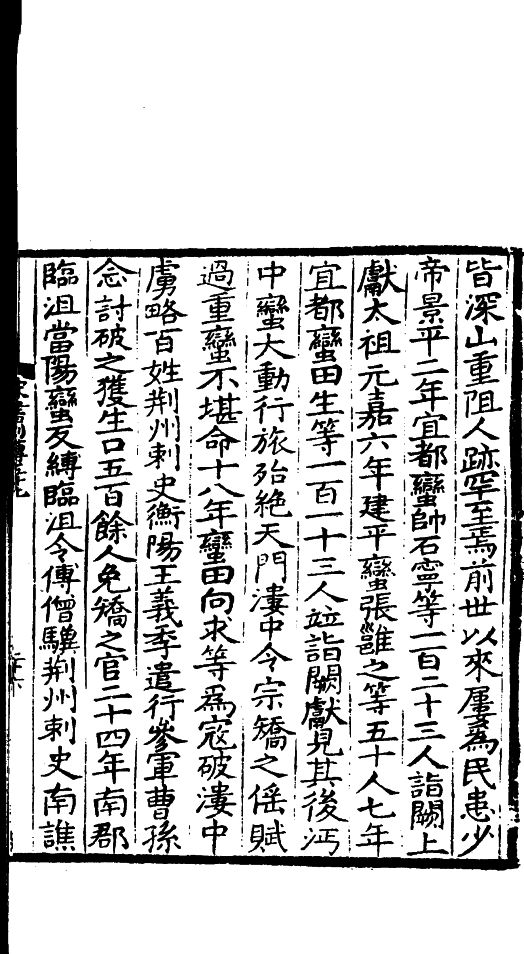 皆深山重阻人跡罕至焉前世以來屢爲民患少
帝景平二年宜都蠻帥石寧等一百二十三人詣闕上
獻太祖元嘉六年建平蠻張雝之等五十人七年
宜都蠻田生等一百一十三人竝詣闕獻見其後沔
中蠻大動行旅殆絶天門漊中令宗矯之傜賦
過重蠻不堪命十八年蠻田向求等爲寇破漊中
虜略百姓荆州刺史衡陽王義季遣行參軍曹孫
念討破之獲生口五百餘人免矯之官二十四年南郡
臨沮當陽蠻反縛臨沮令傅僧驥荆州刺史南譙